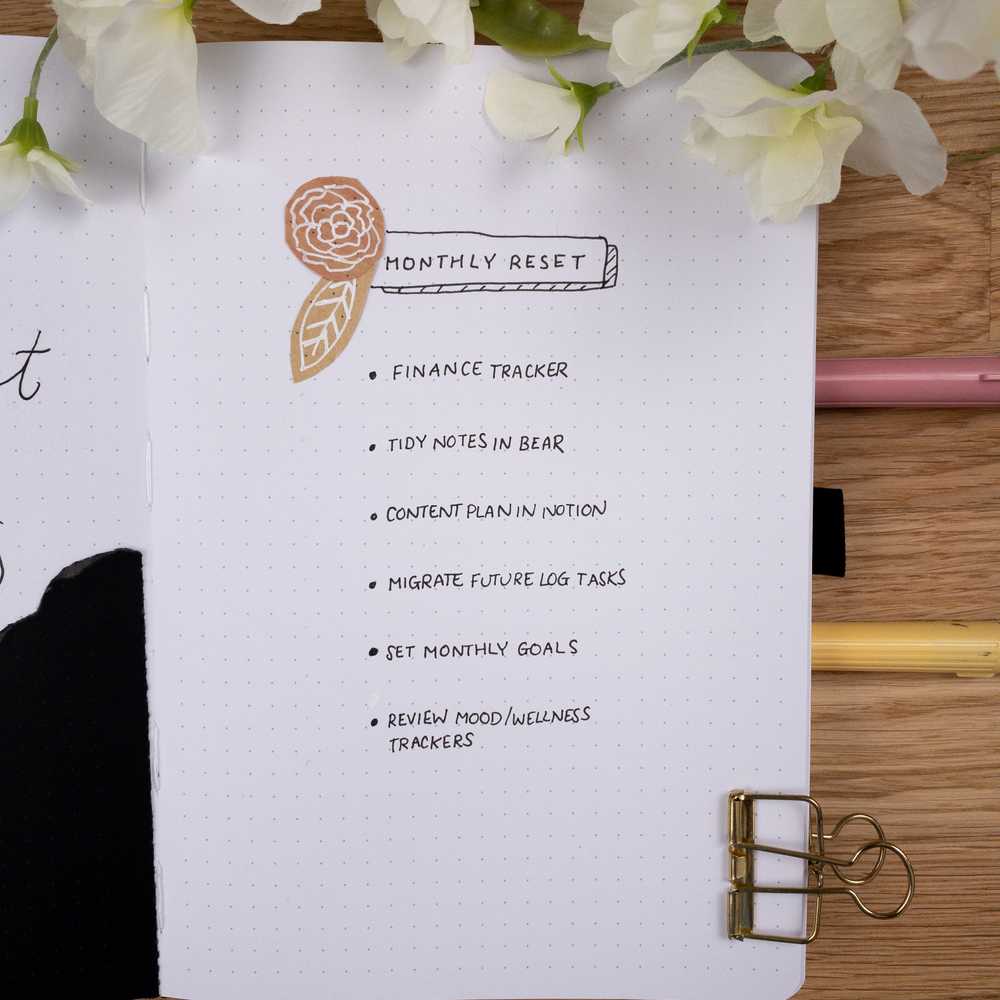 MONTHLY RESET
• FINANCE TRACKER
• TIDY NOTES IN BEAR
• CONTENT PLAN IN NOTION
• MIGRATE FUTURE LOG TASKS
• SET MONTHLY GOALS
• REVIEW MOOD/WELLNESS
TRACKERS